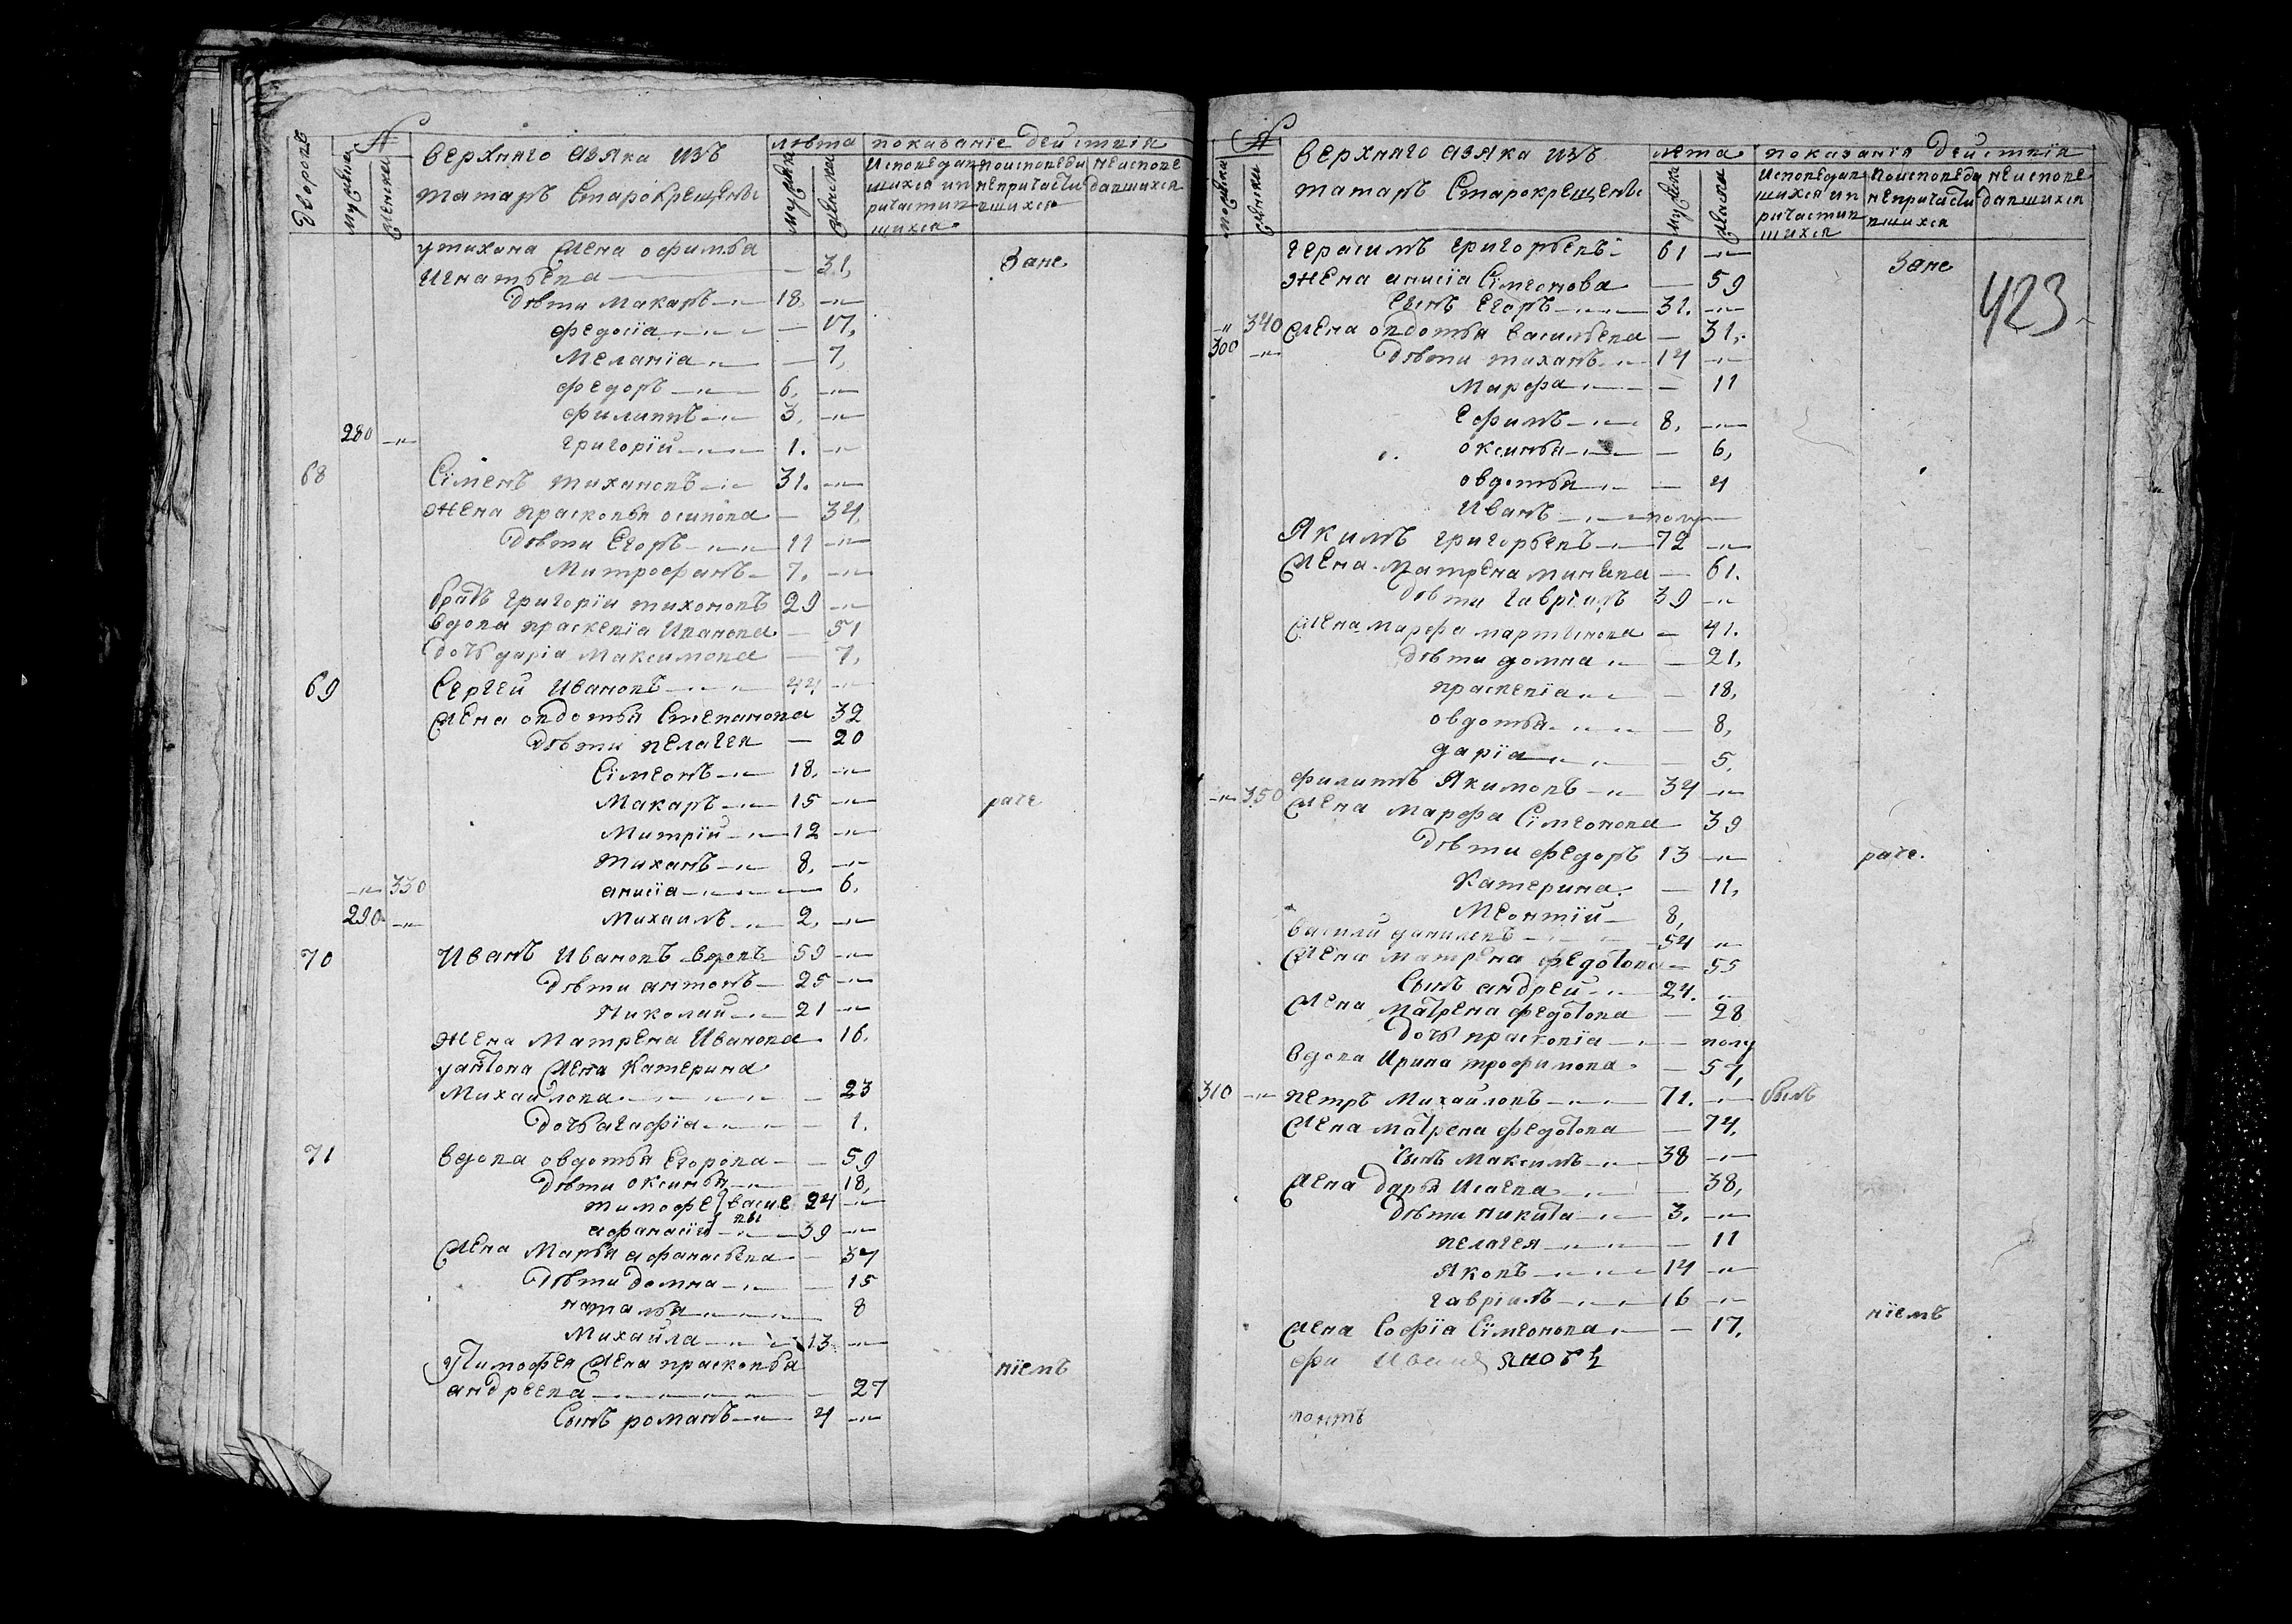 дворовъ
№
мужска
женска
верхняго азяка изъ
татаръ Старокрещенъ
лѣта
мужска
женска
показанїе действія
Исповедав
шихся ип
ричастив
шихся
поисповеди
непричасти
вшихся
неиспове
давшихся
утихана жена офимья
Игнатьева — 31, Зане
дѣти Макаръ 18.
федосїа 17,
Меланїа 7,
федоръ 6.
филиппъ 3.
280 григорїи 1.
68 Сїменъ тихановъ 31.
жена прасковья осипова — 34,
дѣти Егоръ 11
Митрофанъ 7.
братъ григорїи тихоновъ 29
вдова праскевїа Иванова — 51
дочь дарїа Максимова — 7,
69 Сергеи Ивановъ 44
жена овдотья Степанова 32
дѣти пелагея — 20
Сїмеонъ 18.
Макаръ 15 раче
Митрїи 12
тиханъ 8.
330 анисїа 6.
290 Михаилъ 2.
70 Иванъ Ивановъ вдовъ 59
дѣти антонъ 25
Николаи 21
жена Матрена Иванова 16.
уантона жена Катерина
Михаилова — 23
дочь агафїа — 1.
71 вдова овдотья Егорова — 59
дѣти оксинья — 18,
тимофе васис 24
афанасїи вы 39
жена Марья афанасьева — 37
дѣти домна — 15
наталья 8
Михаила 13
утимофея жена прасковья
андреева — 27 нїемъ
Сынъ романъ 4
№
женска
верхняго азяка изъ
татаръ Старокрещенъ
лета
мужска
женска
показанія действія
Исповедав
шихся ип
ричастив
шихся
поисповеди
непричасти
вшихся
неиспове
давшихся
герасимъ григорьевъ 61 Зане
423
жена анисїа Сїмеонова — 59
Сынъ Егоръ 31.
340 жена овдотья васильева — 31,
300 дѣти тиханъ 14
Марфа — 11
ефимъ 8.
оксинья — 6,
овдотья — 4
Иванъ полу
Якимъ григорьевъ 72
жена Матрена минеева — 61.
дѣти гаврїилъ 39
жена марфа мартынова — 41.
дѣти домна — 21,
праскевїа — 18,
овдотья — 8,
дарїа — 5.
филиппъ Якимовъ 34
350 жена марфа Сїмеонова 39
дѣти федоръ 13 раче.
Катерина — 11,
Меонтїи 8,
василии данилевъ 54
жена матрена федотова — 55
Сынъ андреи 24.
жена матрена федотова — 28
дочь прасковїа — полу
вдова Ирина трофимова — 57,
310 петръ Михаиловъ 71. былъ
жена матрена федотова — 74,
Сынъ Максимъ 38
жена дарья Исаева — 38,
дѣти никита 3.
пелагея — 11
Яковъ 14
гаврїилъ 16 нїемъ
жена Софїа Сїмеонова — 17,